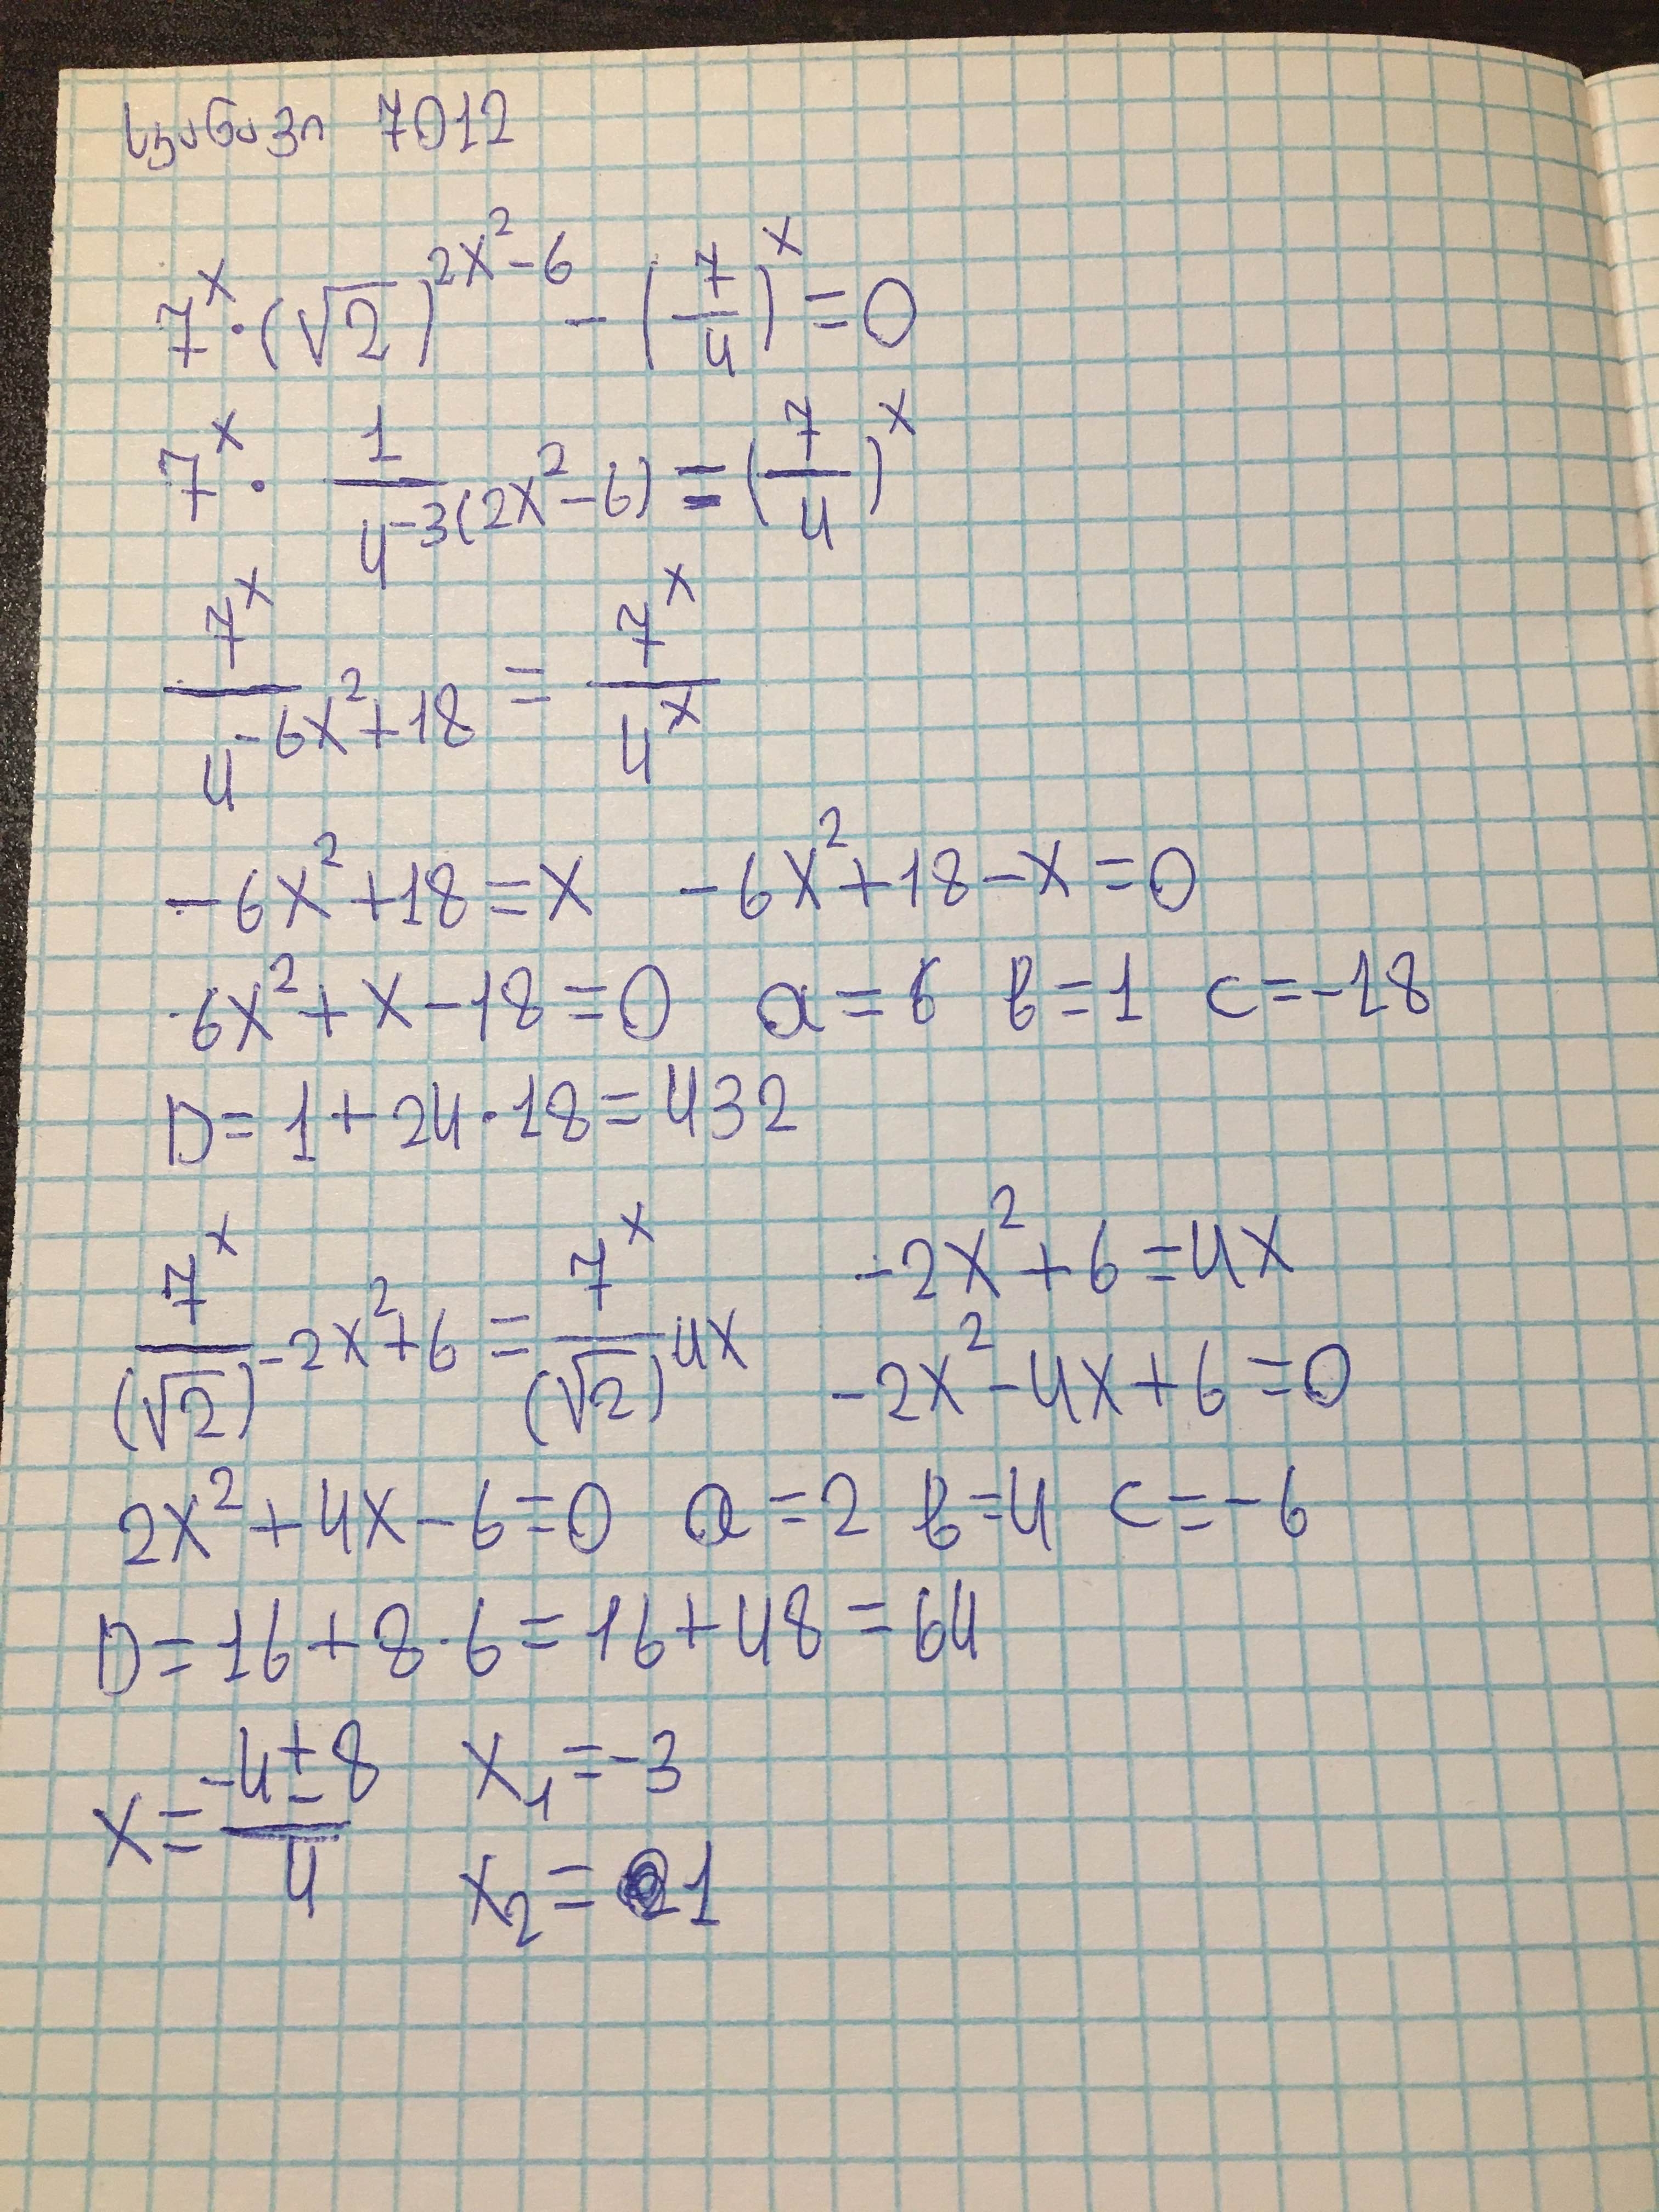 სკანავი 7012
7^x · (√2)^(2x²-6) - (7/4)^x = 0
7^x · 1/4^(-3(2x²-6)) = (7/4)^x
7^x/4^(-6x²+18) = 7^x/4^x
-6x²+18=x -6x²+18-x=0
6x²+x-18=0 a=6 b=1 c=-18
D=1+24·18=432
7^x/(√2)^(-2x²+6) = 7^x/(√2)^(4x) -2x²+6=4x
-2x²-4x+6=0
2x²+4x-6=0 a=2 b=4 c=-6
D=16+8·6=16+48=64
x=(-4±8)/4 x₁=-3
x₂=1